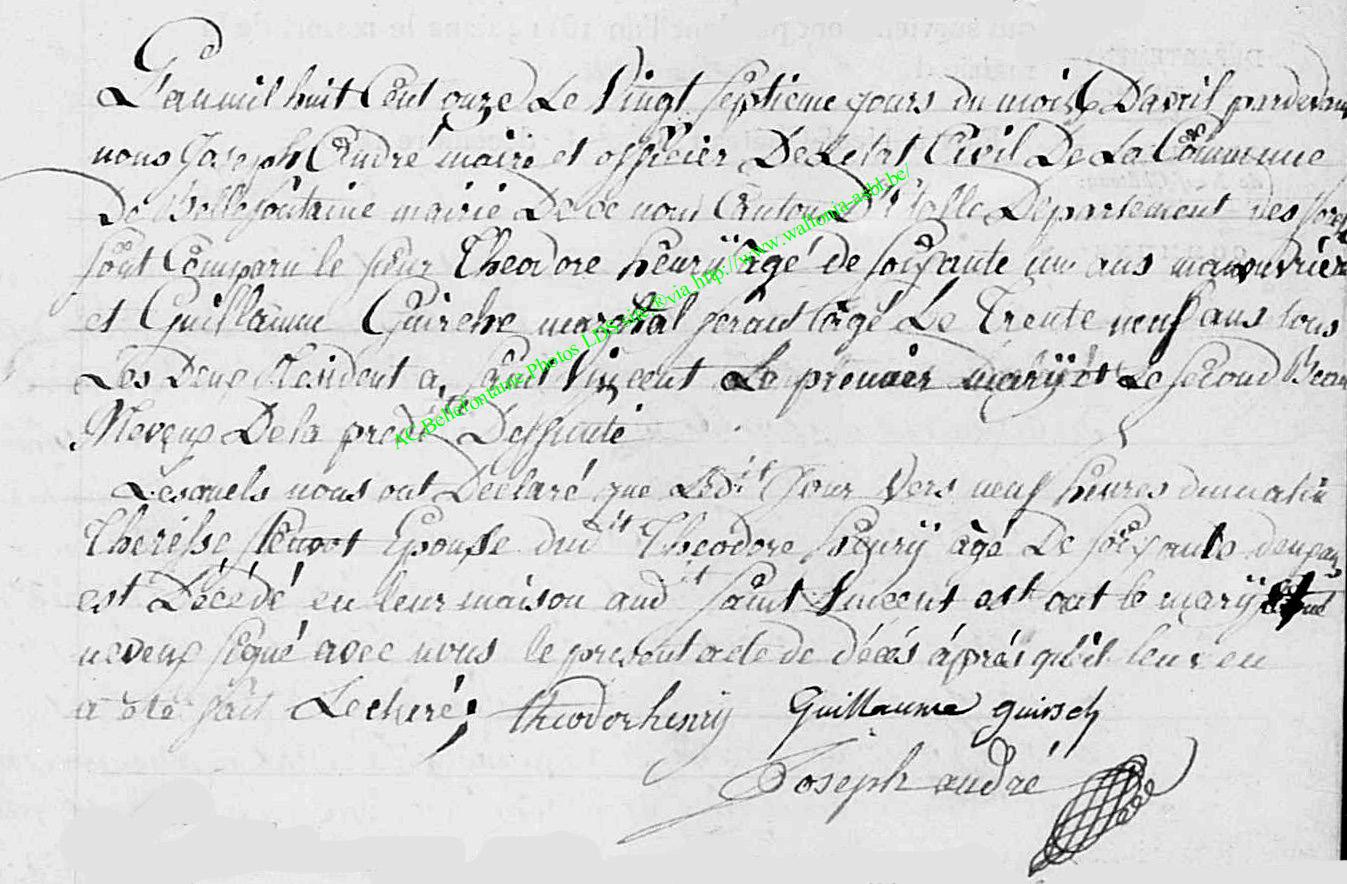 L'an mil huit Cent onze Le Vingt Septieme jours du mois D'avril pardevant
nous Joseph André maire et officier De Letat Civil De La Commune
De Bellefontaine mairie De ce nom Canton D'Etalle Departement des forets
sont Comparu le sieur Theodore henrÿ âgé de soixante un ans manouvrier
et Guillaume Guirche marchal ferant âgé De Trente neuf ans tous
Les Deux Resident a Saint Vincent Le premier marÿ et Le second Beau
Neveux De la predte Deffunte
Lesquels nous ont Declaré que Ledit Jour Vers neuf heures du matin
Theresse Epousse dudit Theodore henrÿ âgé De soixante deux ans
est Décédé en leur maison audit Saint Vincent est ont le marÿ
neveux signé avec nous le present acte de décés áprés qu'il leur en
a été fait Lecture; theodor henrÿ Guillaume guirsch
Joseph andré
AC Bellefontaine Photos LDS via http://www.wallonia-asbl.be/